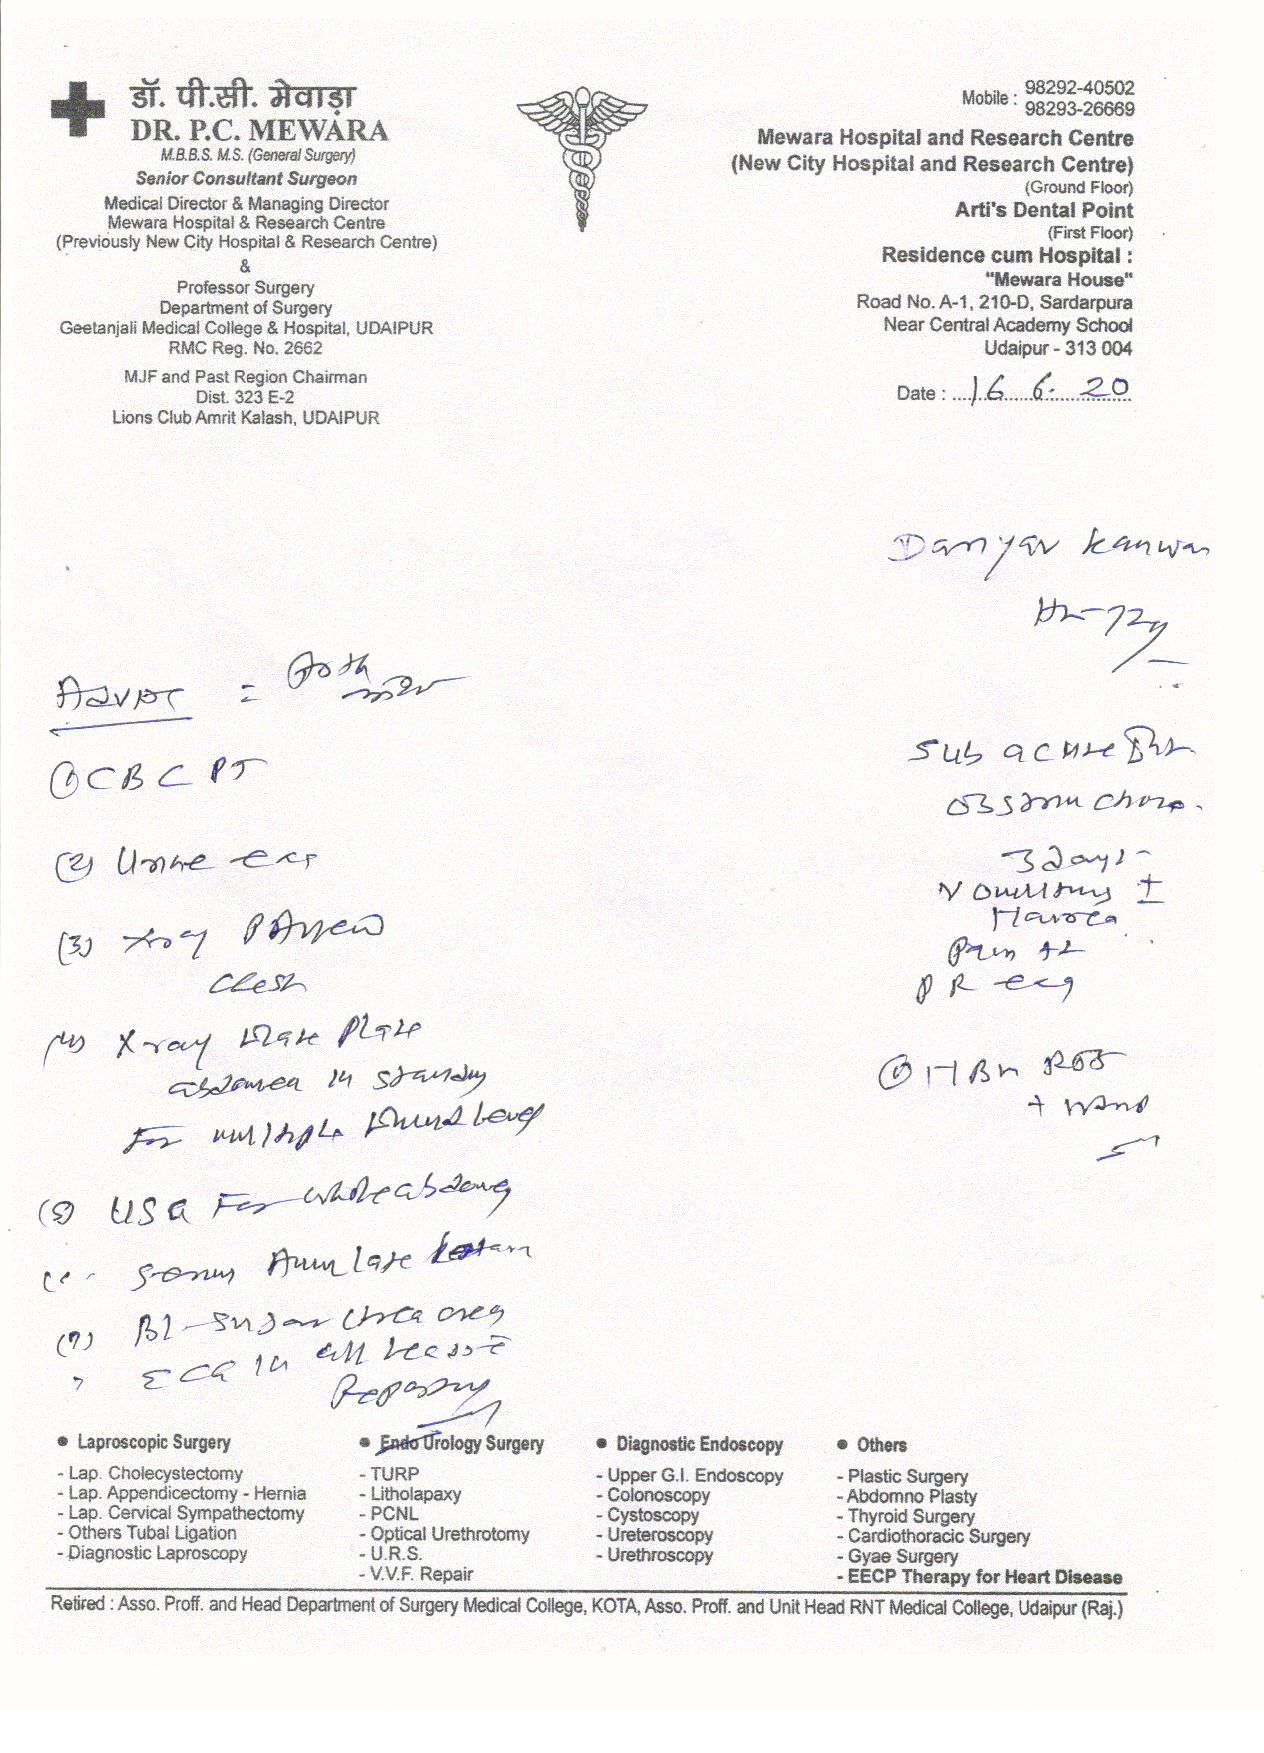 डॉ. पी.सी. मेवाड़ा
DR. P.C. MEWARA
M.B.B.S. M.S. (General Surgery)
Senior Consultant Surgeon
Medical Director & Managing Director
Mewara Hospital & Research Centre
(Previously New City Hospital & Research Centre)
&
Professor Surgery
Department of Surgery
Geetanjali Medical College & Hospital, UDAIPUR
RMC Reg. No. 2662
MJF and Past Region Chairman
Dist. 323 E-2
Lions Club Amrit Kalash, UDAIPUR
Mobile : 98292-40502
98293-26669
Mewara Hospital and Research Centre
(New City Hospital and Research Centre)
(Ground Floor)
Arti's Dental Point
(First Floor)
Residence cum Hospital :
"Mewara House"
Road No. A-1, 210-D, Sardarpura
Near Central Academy School
Udaipur - 313 004
Date : 16 6. 20
Kanwar
72y
Sub acute
3 days
Vomiting ±
Pain
PR
Advice =
(1) CBC PT
(2) Urine
(3) Xray
Chest
(4) X-ray Plate
abdomen in standing
For multiple level
(5) USG For whole abdomen
Serum Amylase
(7) Bl-sugar urea
ECG in all
Reporting
• Laproscopic Surgery
- Lap. Cholecystectomy
- Lap. Appendicectomy - Hernia
- Lap. Cervical Sympathectomy
- Others Tubal Ligation
- Diagnostic Laproscopy
• Endo Urology Surgery
- TURP
- Litholapaxy
- PCNL
- Optical Urethrotomy
- U.R.S.
- V.V.F. Repair
• Diagnostic Endoscopy
- Upper G.I. Endoscopy
- Colonoscopy
- Cystoscopy
- Ureteroscopy
- Urethroscopy
• Others
- Plastic Surgery
- Abdomno Plasty
- Thyroid Surgery
- Cardiothoracic Surgery
- Gyae Surgery
- EECP Therapy for Heart Disease
Retired : Asso. Proff. and Head Department of Surgery Medical College, KOTA, Asso. Proff. and Unit Head RNT Medical College, Udaipur (Raj.)